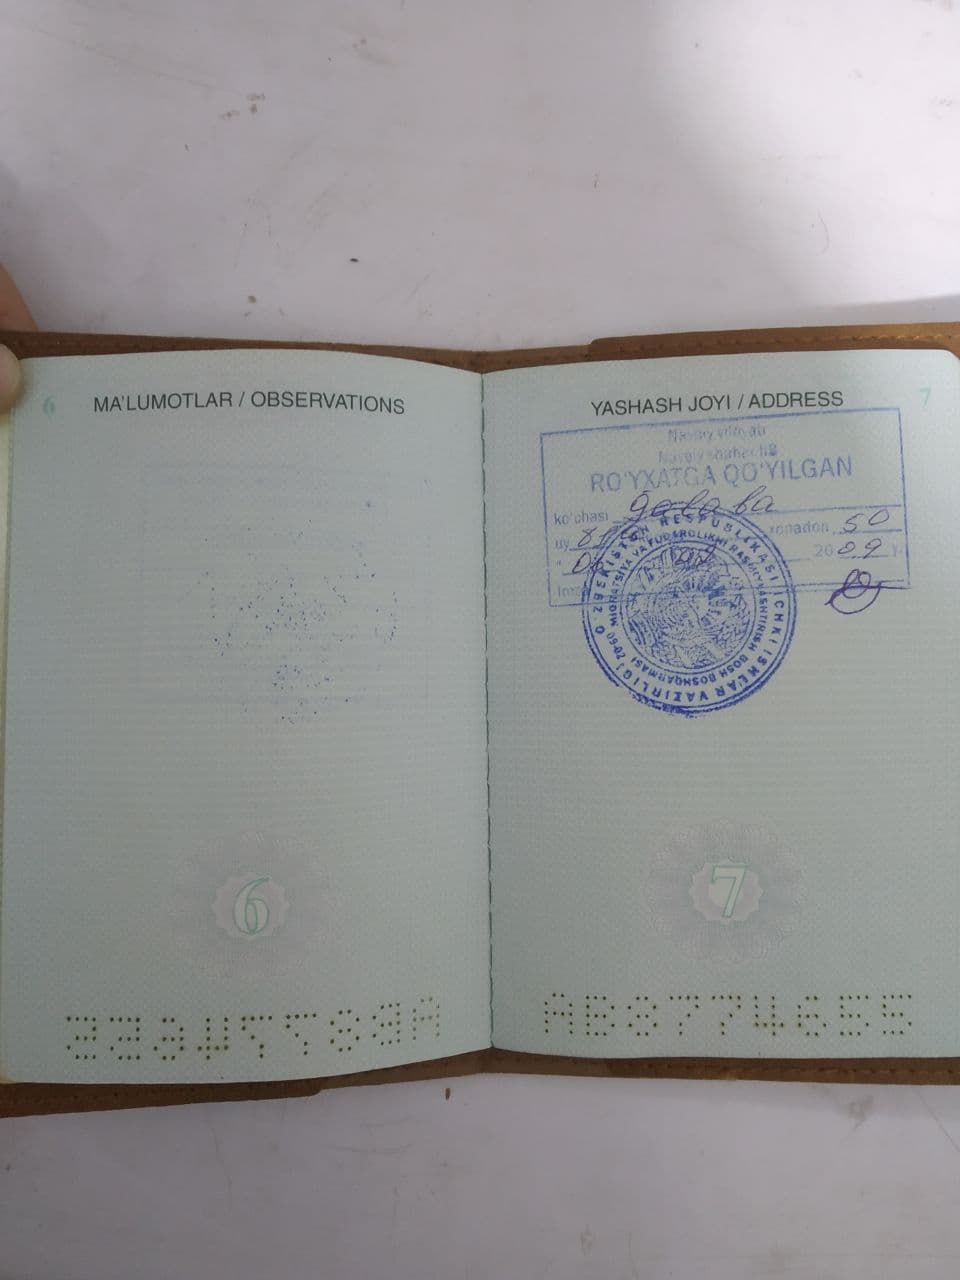 6
MA'LUMOTLAR / OBSERVATIONS
6
7
YASHASH JOYI / ADDRESS
Navoiy viloyati
Navoiy shahar IIB
RO'YXATGA QO'YILGAN
ko'chasi galaba
uy xonadon 50
20
O'ZBEKISTON RESPUBLIKASI ICHKI ISHLAR VAZIRLIGI
MIGRATSIYA VA FUQAROLIKNI RASMIYLASHTIRISH BOSH BOSHQARMASI
7
AB8774655